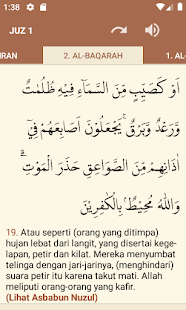 1:38
JUZ 1
RAN
2. AL-BAQARAH
أَوْ كَصَيِّبٍ مِّنَ السَّمَآءِ فِيْهِ ظُلُمٰتٌ
وَّرَعْدٌ وَّبَرْقٌۚ يَجْعَلُوْنَ اَصَابِعَهُمْ فِيْٓ
اٰذَانِهِمْ مِّنَ الصَّوَاعِقِ حَذَرَ الْمَوْتِۗ
وَاللّٰهُ مُحِيْطٌۢ بِالْكٰفِرِيْنَ
19. Atau seperti (orang yang ditimpa)
hujan lebat dari langit, yang disertai kege-
lapan, petir dan kilat. Mereka menyumbat
telinga dengan jari-jarinya, (menghindari)
suara petir itu karena takut mati. Allah
meliputi orang-orang yang kafir.
(Lihat Asbabun Nuzul)